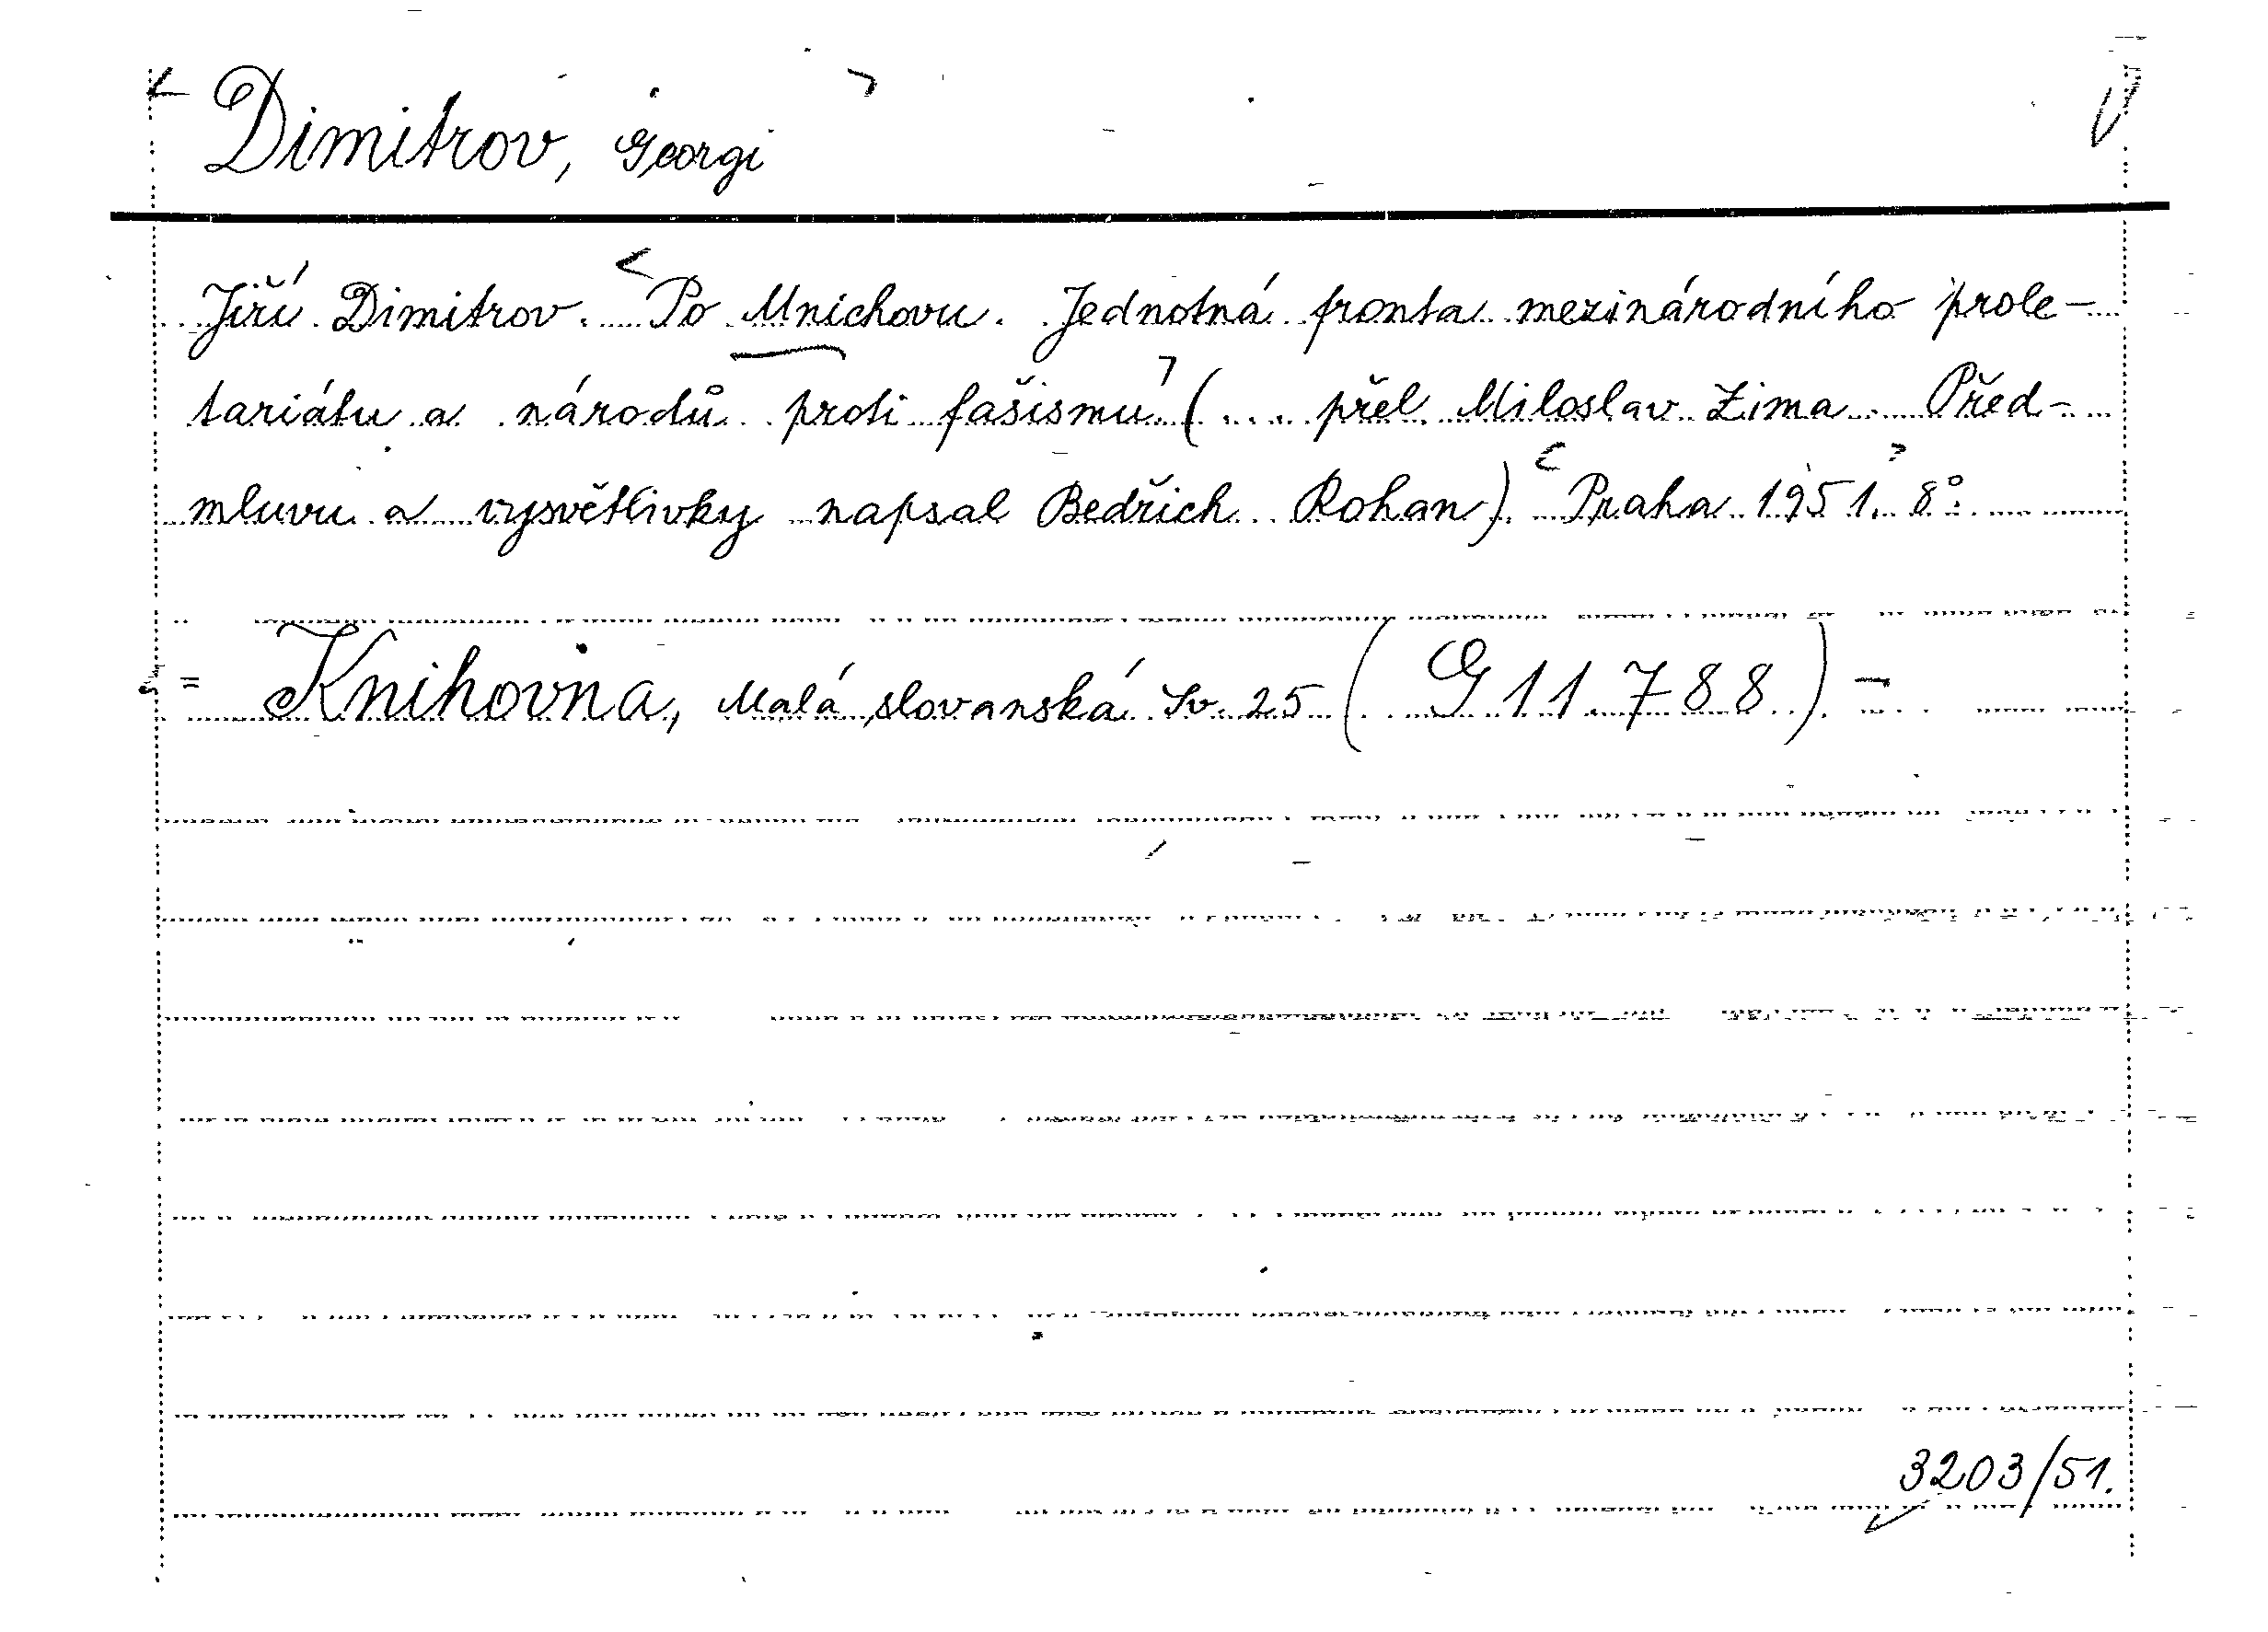 Dimitrov, Georgi
Jiří Dimitrov. Po Mnichovu. Jednotná fronta mezinárodního prole-
tariátu a národů proti fašismu (.... přel. Miloslav Zima. Před-
mluvu a vysvětlivky napsal Bedřich Rohan). Praha 1951. 8°.
= Knihovna, Malá slovanská Sv. 25 (G 11.788) =
3203/51.